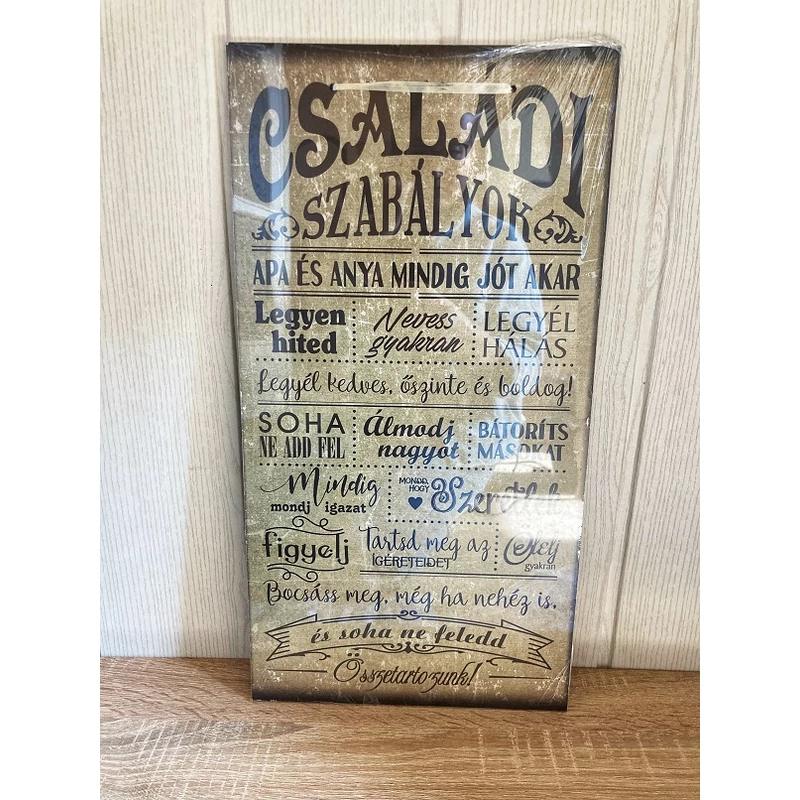 CSALÁDI
SZABÁLYOK
APA ÉS ANYA MINDIG JÓT AKAR
Legyen
hited
Nevess
gyakran
LEGYÉL
HÁLÁS
Legyél kedves, őszinte és boldog!
SOHA
NE ADD FEL
Álmodj
nagyot
BÁTORÍTS
MÁSOKAT
Mindig
mondj igazat
MONDD,
HOGY
Szeretlek
figyelj
Tartsd meg az
ÍGÉRETEIDET
Ölelj
gyakran
Bocsáss meg, még ha nehéz is,
és soha ne feledd
Összetartozunk!